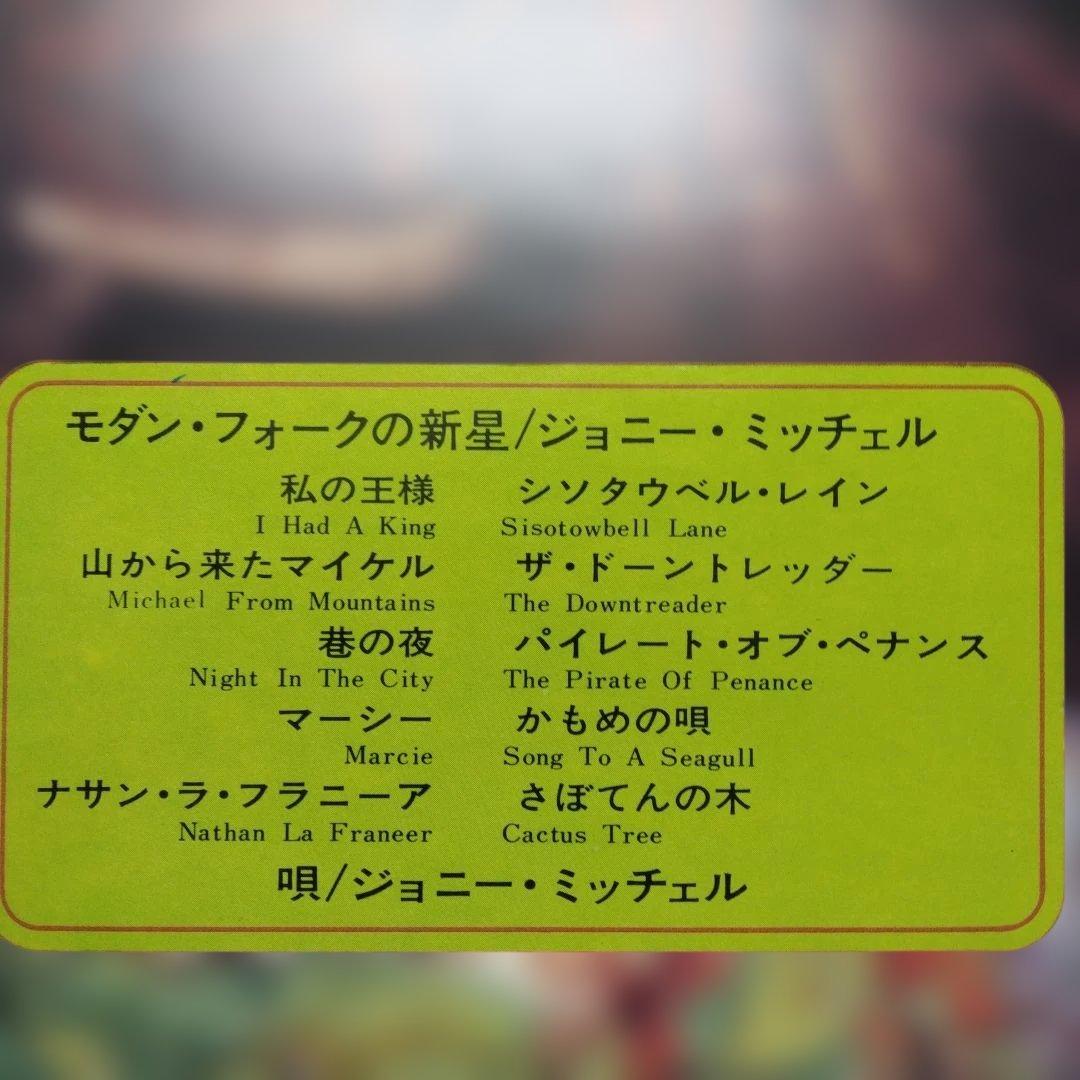 モダン・フォークの新星/ジョニー・ミッチェル
私の王様
I Had A King
山から来たマイケル
Michael From Mountains
巷の夜
Night In The City
マーシー
Marcie
ナサン・ラ・フラニーア
Nathan La Franeer
シソタウベル・レイン
Sisotowbell Lane
ザ・ドーントレッダー
The Downtreader
パイレート・オブ・ペナンス
The Pirate Of Penance
かもめの唄
Song To A Seagull
さぼてんの木
Cactus Tree
唄/ジョニー・ミッチェル